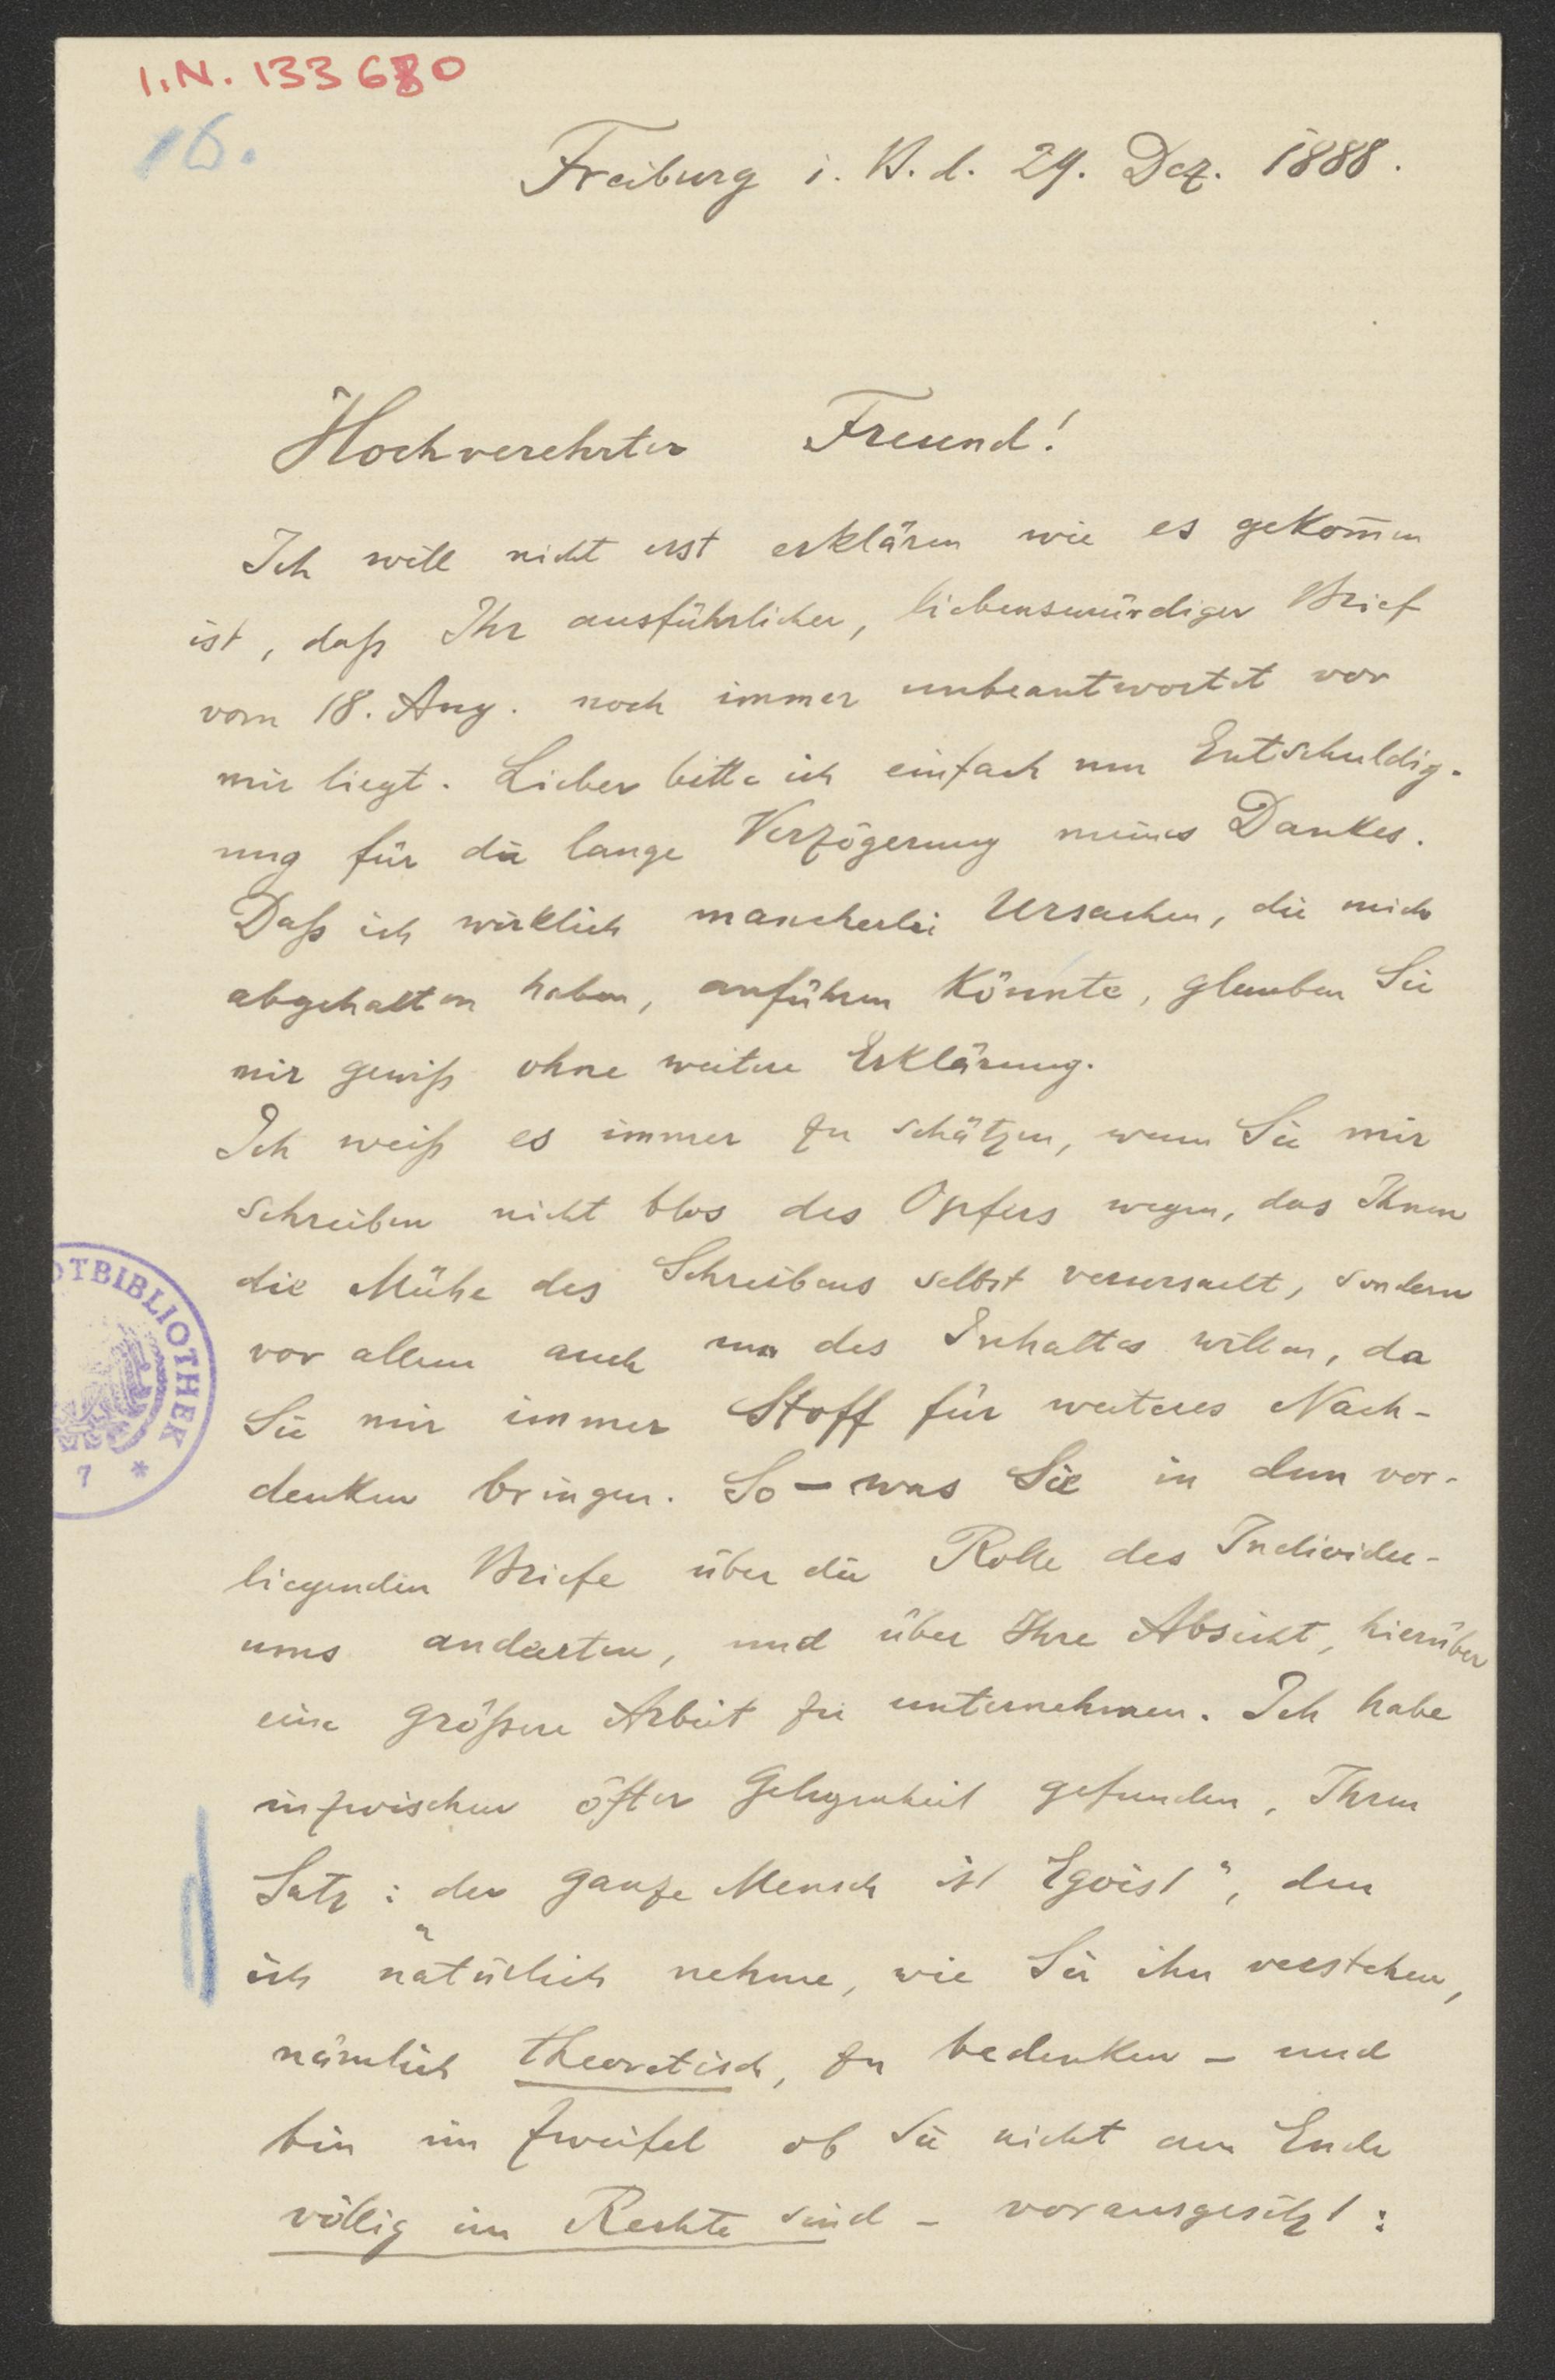 I.N. 133680
16.
Freiburg i. B. d. 29. Dez. 1888.
Hochverehrter Freund!
Ich will nicht erst erklären wie es gekom̅en
ist, daß Ihr ausführlicher, liebenswürdiger Brief
vom 18. Aug. noch immer unbeantwortet vor
mir liegt. Lieber bitte ich einfach um Entschuldig-
ung für die lange Verzögerung meines Dankes.
Daß ich wirklich mancherlei Ursachen, die mich
abgehalten haben, anführen könnte, glauben Sie
mir gewiß ohne weitere Erklärung.
Ich weiß es immer zu schätzen, wenn Sie mir
schreiben nicht blos des Opfers wegen, das Ihnen
die Mühe des Schreibens selbst verursacht, sondern
vor allem auch um des Inhaltes willen, da
Sie mir immer Stoff für weiteres Nach-
denken bringen. So – was Sie in dem vor-
liegenden Briefe über die Rolle des Individu-
ums andeuten, und über Ihre Absicht, hierüber
eine größere Arbeit zu unternehmen. Ich habe
inzwischen öfter Gelegenheit gefunden, Ihren
Satz: „der ganze Mensch ist Egoist“, den
ich natürlich nehme, wie Sie ihn verstehen,
nämlich theoretisch, zu bedenken – und
bin im Zweifel ob Sie nicht am Ende
völlig im Rechte sind – vorausgesetzt:
OTBIBLIOTHEK
7 *